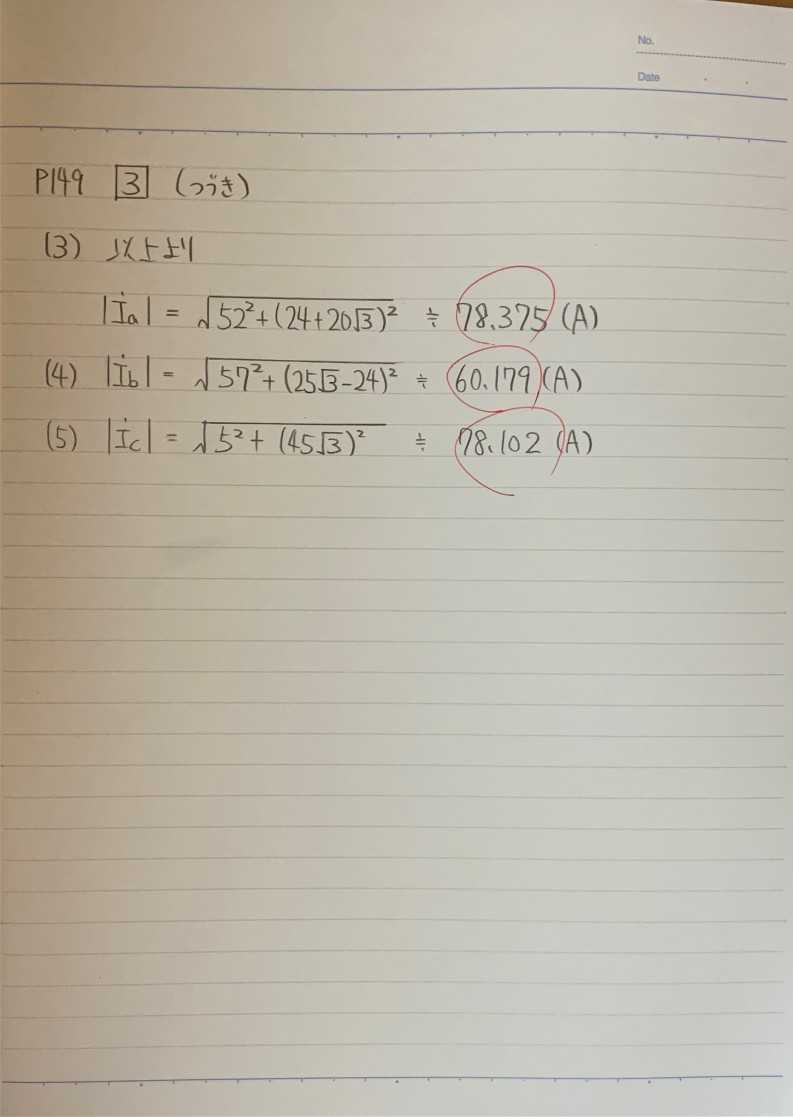 No.
Date . .
P149 3 (つづき)
(3) 以上より
|İa| = √52²+(24+20√3)² ≒ 78.375 (A)
(4) |İb| = √57²+(25√3-24)² ≒ 60.179 (A)
(5) |İc| = √5²+(45√3)² ≒ 78.102 (A)